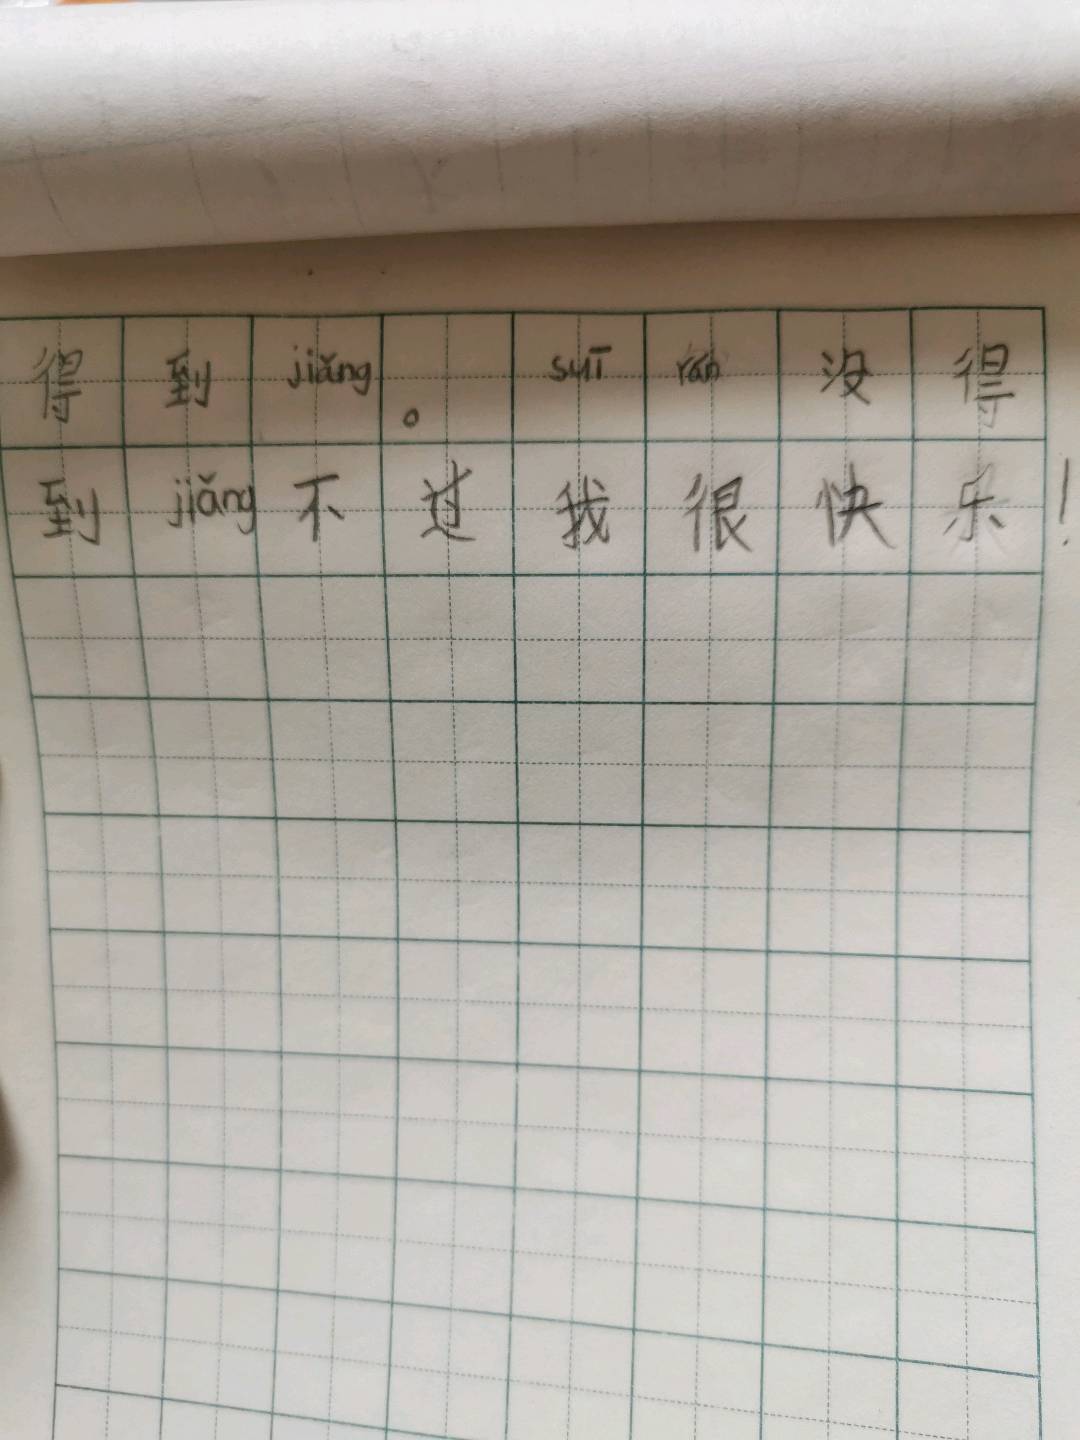 得到jiǎng。suī rán没得
到jiǎng不过我很快乐！